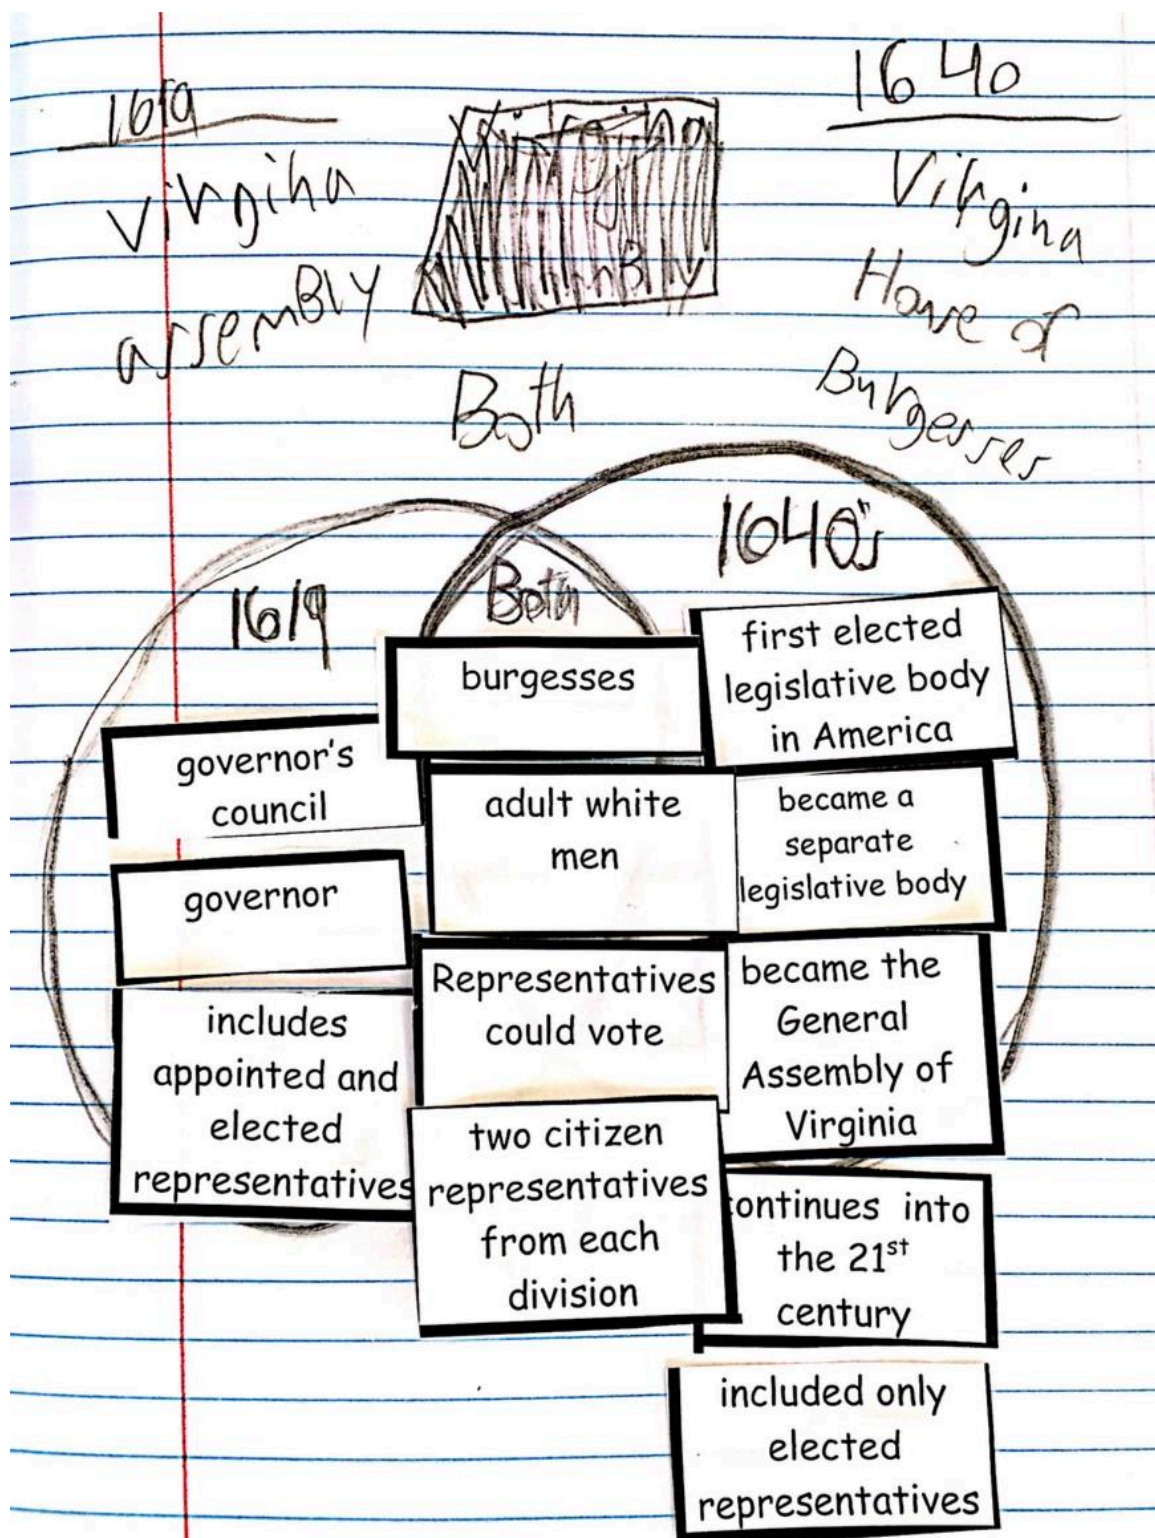 1619
Virginia
assemBLY
Both
1640
Virgina
House of
Burgesses
1619
Both
1640's
governor's
council
governor
includes
appointed and
elected
representatives
burgesses
adult white
men
Representatives
could vote
two citizen
representatives
from each
division
first elected
legislative body
in America
became a
separate
legislative body
became the
General
Assembly of
Virginia
continues into
the 21st
century
included only
elected
representatives